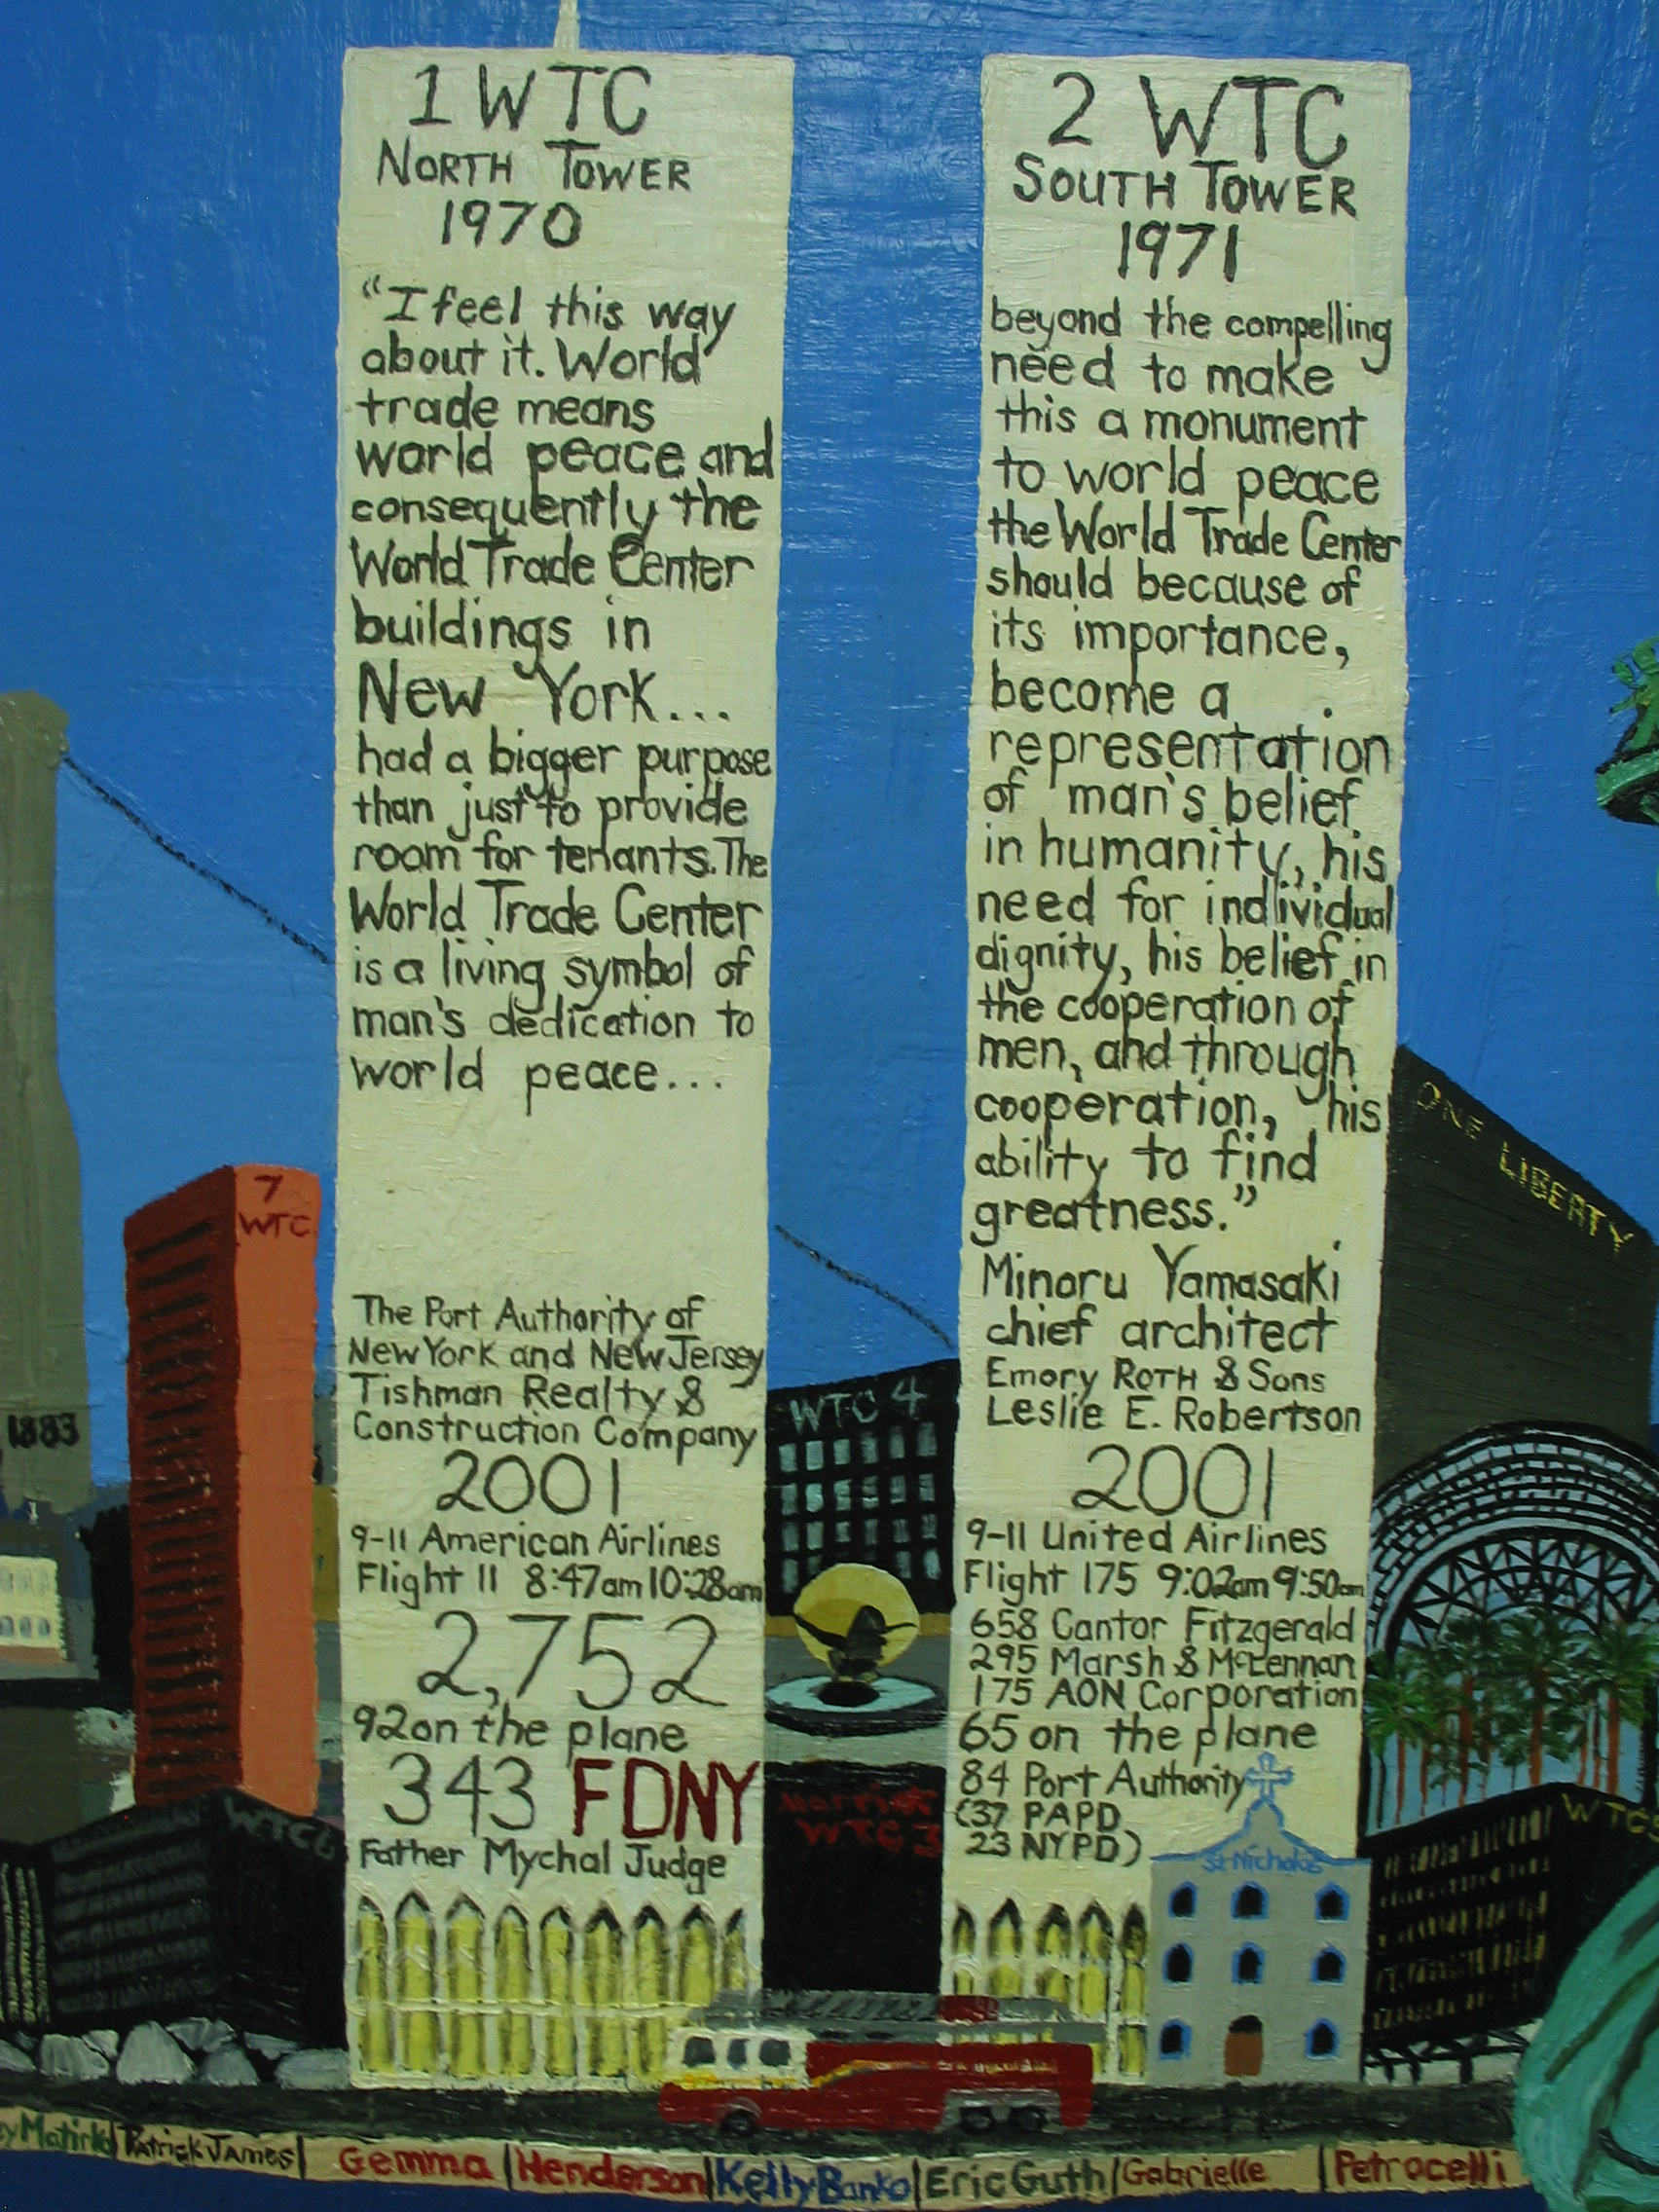 1 WTC
NORTH TOWER
1970
"I feel this way
about it. World
trade means
world peace and
consequently the
World Trade Center
buildings in
New York...
had a bigger purpose
than just to provide
room for tenants. The
World Trade Center
is a living symbol of
man's dedication to
world peace...
The Port Authority of
New York and New Jersey
Tishman Realty &
Construction Company
2001
9-11 American Airlines
Flight 11 8:47am 10:28am
2,752
92 on the plane
343 FDNY
Father Mychal Judge
2 WTC
SOUTH TOWER
1971
beyond the compelling
need to make
this a monument
to world peace
the World Trade Center
should because of
its importance,
become a
representation
of man's belief
in humanity, his
need for individual
dignity, his belief in
the cooperation of
men, and through
cooperation, his
ability to find
greatness."
Minoru Yamasaki
chief architect
Emory ROTH & Sons
Leslie E. Robertson
2001
9-11 United Airlines
Flight 175 9:02am 9:50am
658 Cantor Fitzgerald
295 Marsh & McLennan
175 AON Corporation
65 on the plane
84 Port Authority
(37 PAPD
23 NYPD)
St. Nicholas
7
WTC
1883
WTC 4
ONE LIBERTY
Marriott
WTC 3
WTC 6
WTC 5
Patrick James Gemma Henderson Kelly Banko Eric Guth Gabrielle Petrocelli